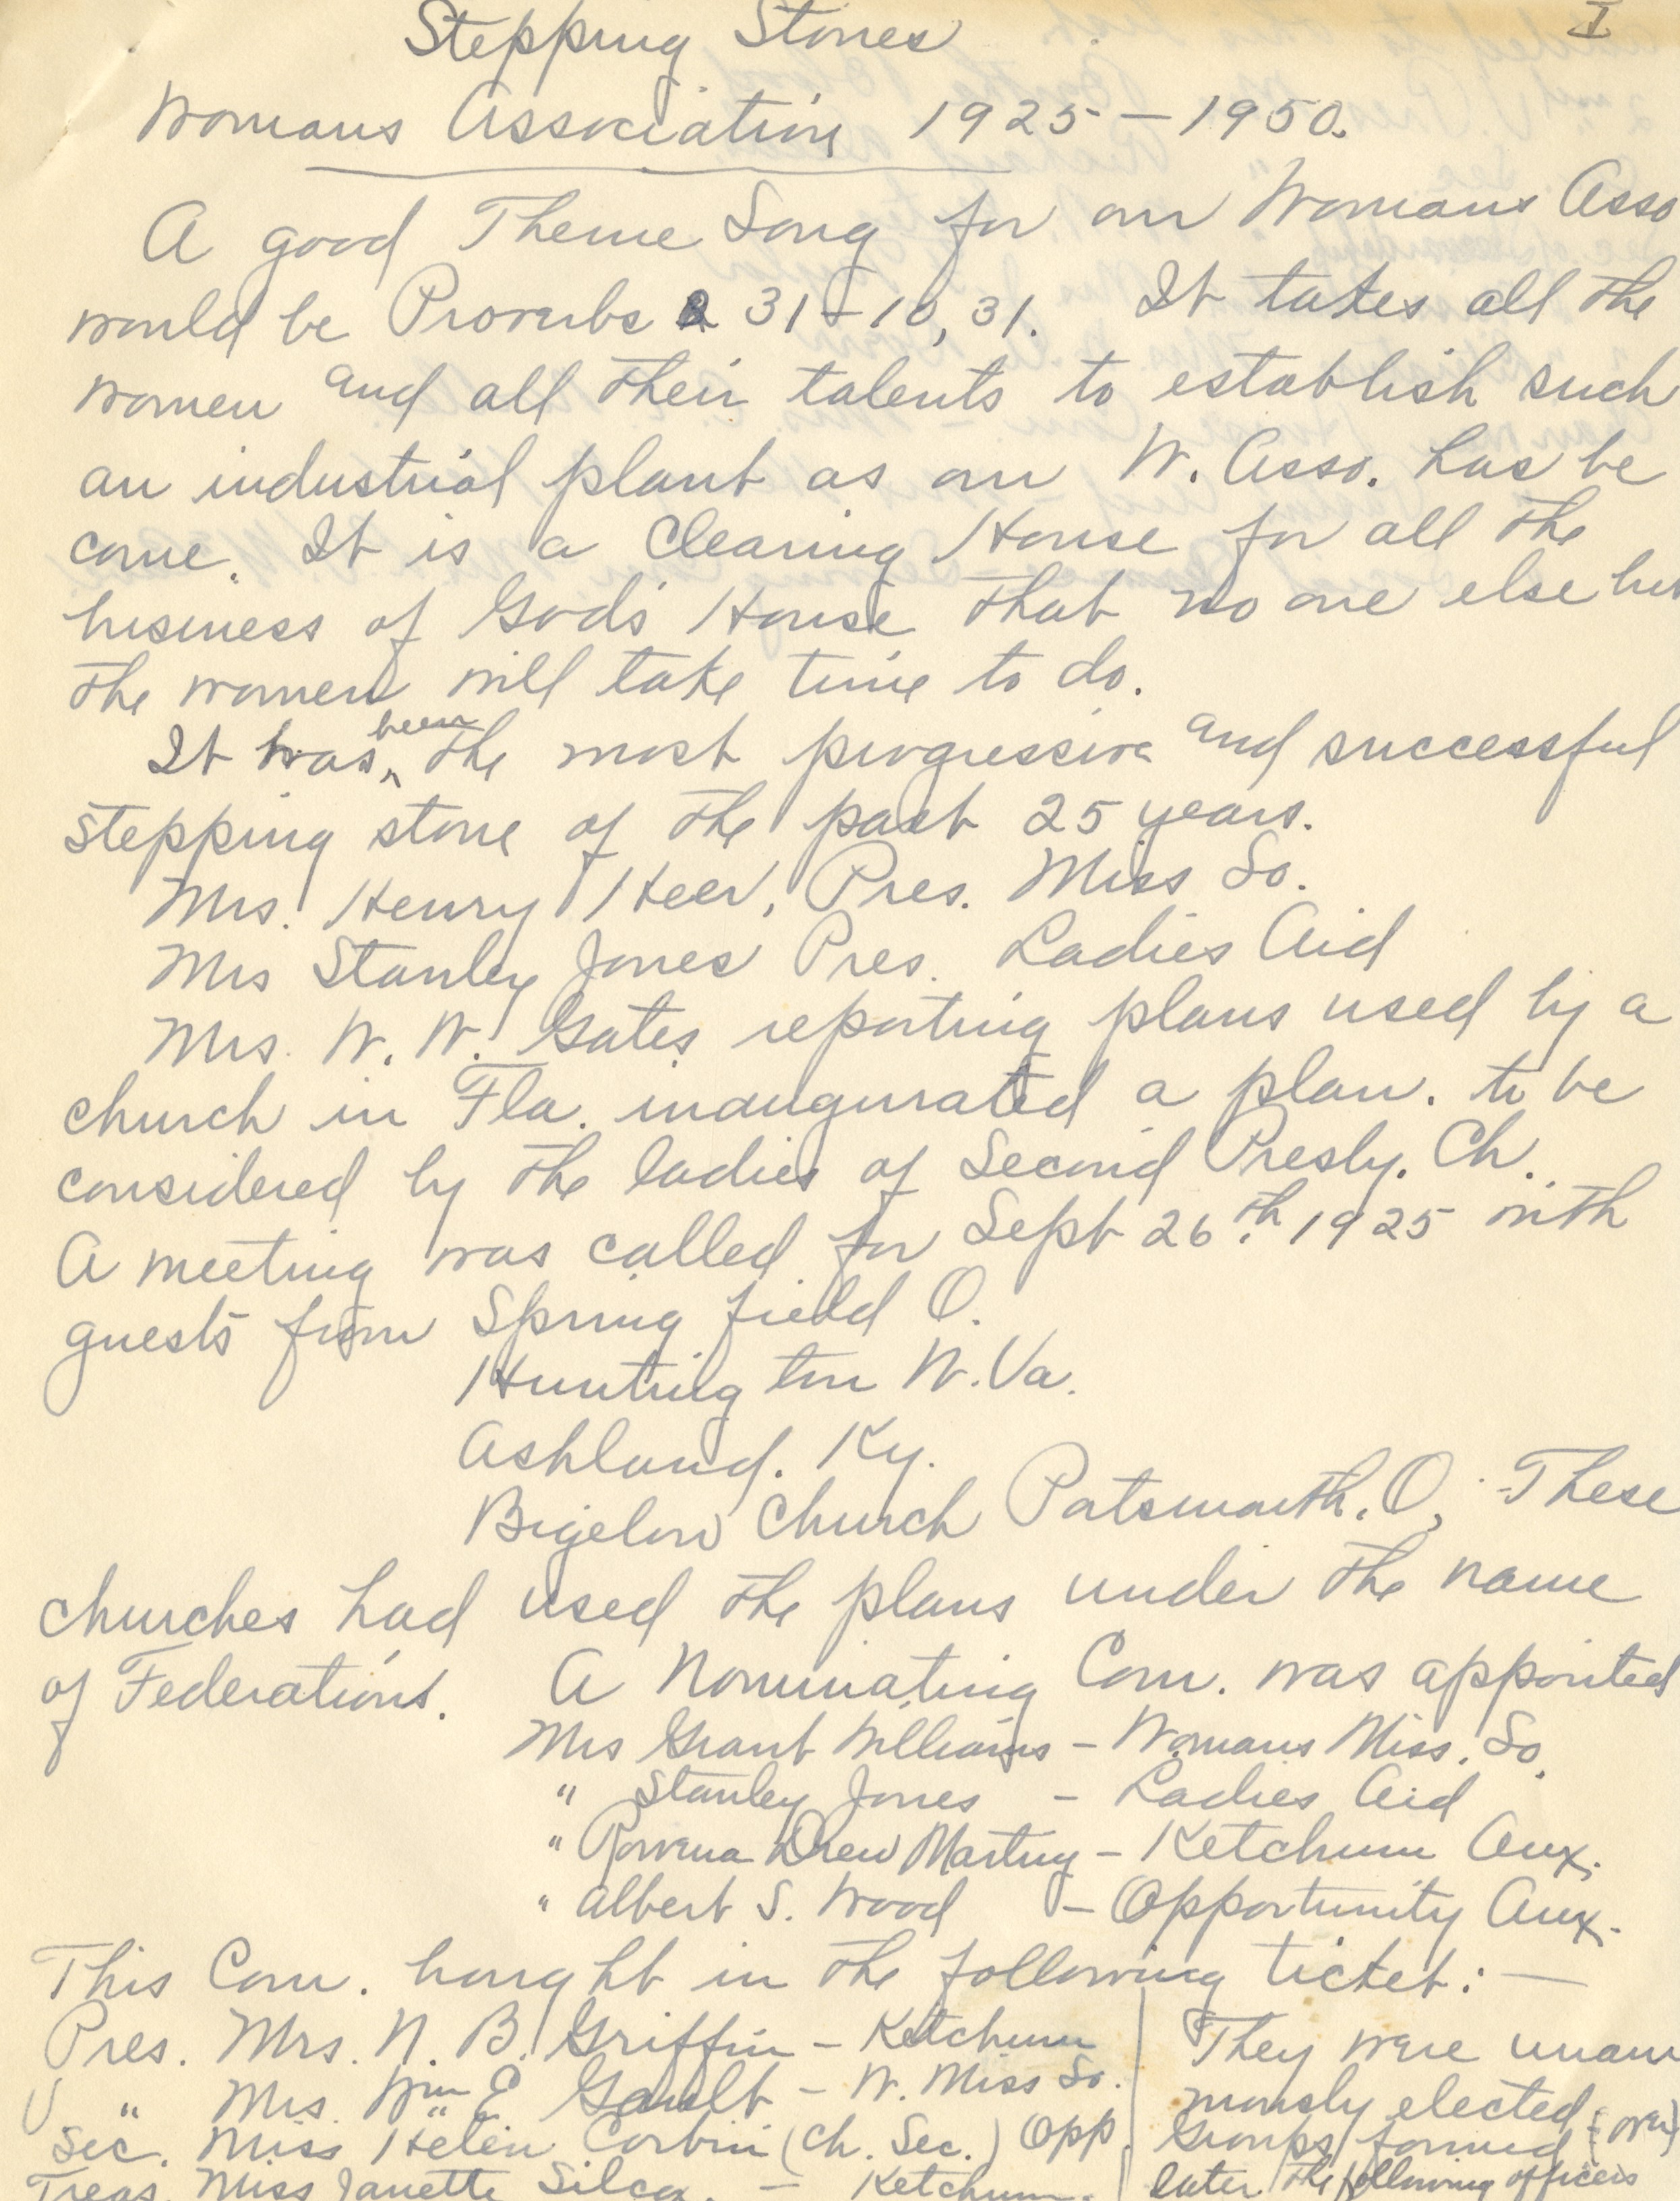 I
Stepping Stones
Womans Association 1925-1950.
A good Theme Song for our Womans Asso
would be Proverbs 31-10,31. It takes all the
women and all their talents to establish such
an industrial plant as our W. Asso. has be
come. It is a Clearing House for all the
business of God's House that no one else but
the women will take time to do.
It has been the most progressive and successful
stepping stone of the past 25 years.
Mrs. Henry Heer, Pres. Miss So.
Mrs Stanley Jones Pres. Ladies Aid
Mrs. W. W. Gates reporting plans used by a
church in Fla. inaugurated a plan. to be
considered by the ladies of Second Presby. Ch.
A meeting was called for Sept 26th 1925 with
guests from Springfield O.
Huntington W. Va.
Ashland. Ky.
Bigelow Church Patsmouth. O. These
churches had used the plans under the name
of Federations. A Nominating Com. was appointed
Mrs Grant Williams - Womans Miss. So.
" Stanley Jones - Ladies Aid
" Rowena Drew Marting - Ketchum Aux.
" Albert S. Wood - Opportunity Aux.
This Com. bought in the following ticket: —
Pres. Mrs. N. B. Griffin - Ketchum
V " Mrs. Wm E Gault - W. Miss So.
Sec. Miss Helen Corbin (Ch. Sec.) Opp.
Treas. Miss Janette Silcox. - Ketchum.
They were unani
mously elected. (over)
Groups formed
later the following officers